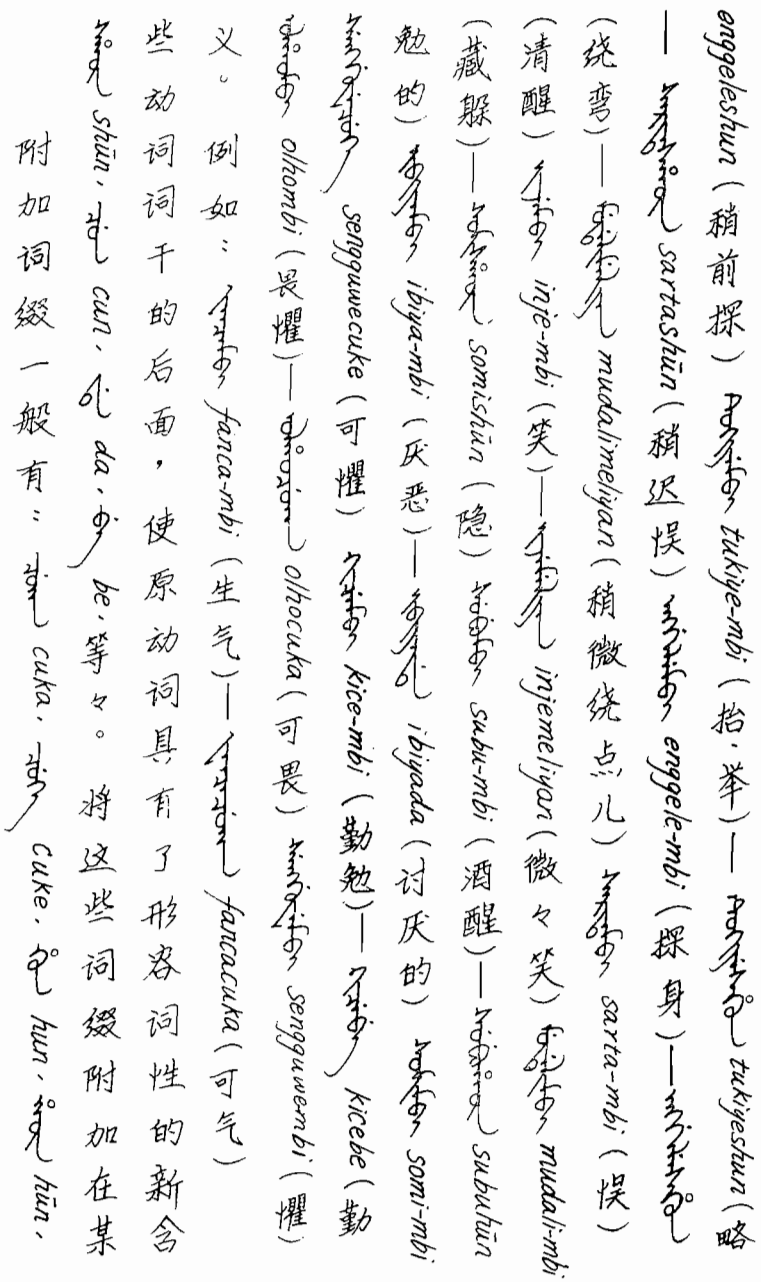 附加词缀一般有：ᠴᡠᡴᠠ cuka、ᠴᡠᡴᡝ cuke、ᡥᡠᠨ hun、ᡥᡡᠨ hūn、
ᠰᡥᡡᠨ shūn、ᠴᡠᠨ cun、ᡩᠠ da、ᠪᡝ be、等々。将这些词缀附加在某
些动词词干的后面，使原动词具有了形容词性的新含
义。例如：ᡶᠠᠨᠴᠠᠮᠪᡳ fanca-mbi（生气）— ᡶᠠᠨᠴᠠᠴᡠᡴᠠ fancacuka（可气）
ᠣᠯᡥᠣᠮᠪᡳ olhombi（畏懼）— ᠣᠯᡥᠣᠴᡠᡴᠠ olhocuka（可畏）ᠰᡝᠩᡤᡠᠸᡝᠮᠪᡳ sengguwembi（懼）
ᠰᡝᠩᡤᡠᠸᡝᠴᡠᡴᡝ sengguwecuke（可懼）ᡴᡳᠴᡝᠮᠪᡳ kice-mbi（勤勉）— ᡴᡳᠴᡝᠪᡝ kicebe（勤
勉的）ᡳᠪᡳᠶᠠᠮᠪᡳ ibiya-mbi（厌恶）— ᡳᠪᡳᠶᠠᡩᠠ ibiyada（讨厌的）ᠰᠣᠮᡳᠮᠪᡳ somi-mbi
（藏躲）— ᠰᠣᠮᡳᠰᡥᡡᠨ somishūn（隐）ᠰᡠᠪᡠᠮᠪᡳ subu-mbi（酒醒）— ᠰᡠᠪᡠᡥᡡᠨ subuhūn
（清醒）ᡳᠨᠵᡝᠮᠪᡳ inje-mbi（笑）— ᡳᠨᠵᡝᠮᡝᠯᡳᠶᠠᠨ injemeliyan（微々笑）ᠮᡠᡩᠠᠯᡳᠮᠪᡳ mudali-mbi
（绕弯）— ᠮᡠᡩᠠᠯᡳᠮᡝᠯᡳᠶᠠᠨ mudalimeliyan（稍微绕点儿）ᠰᠠᡵᡨᠠᠮᠪᡳ sarta-mbi（悮）
— ᠰᠠᡵᡨᠠᠰᡥᡡᠨ sartashūn（稍迟悮）ᡝᠩᡤᡝᠯᡝᠮᠪᡳ enggele-mbi（探身）— ᡝᠩᡤᡝᠯᡝᠰᡥᡠᠨ
enggeleshun（稍前探）ᡨᡠᡴᡳᠶᡝᠮᠪᡳ tukiye-mbi（抬、举）— ᡨᡠᡴᡳᠶᡝᠰᡥᡠᠨ tukiyeshun（略